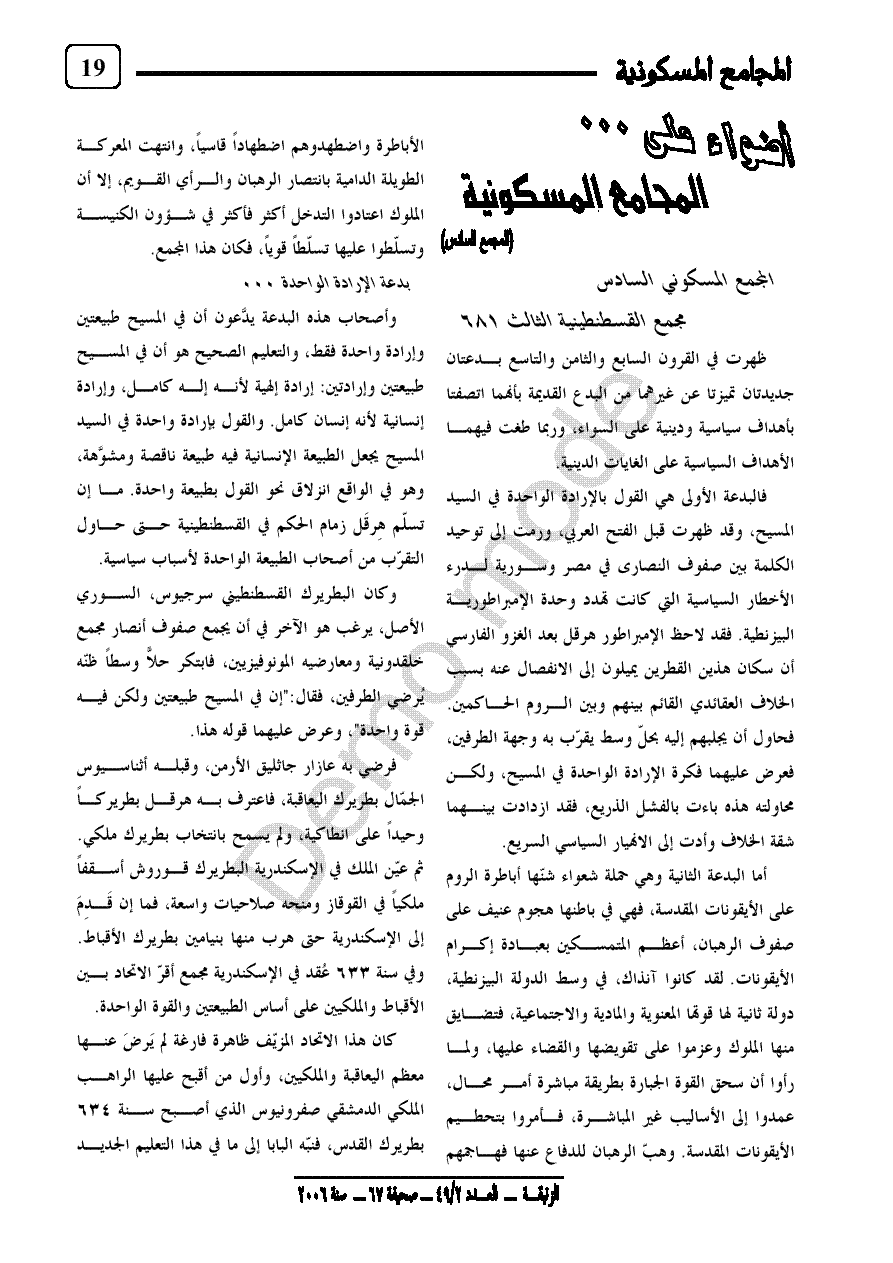 المجامع المسكونية
19
اضواء على ...
المجامع المسكونية
(المجمع السادس)
المجمع المسكوني السادس
مجمع القسطنطينية الثالث ٦٨١
ظهرت في القرون السابع والثامن والتاسع بـــدعتان
جديدتان تميزتا عن غيرهما من البدع القديمة بأنهما اتصفتا
بأهداف سياسية ودينية على السواء، وربما طغت فيهمــا
الأهداف السياسية على الغايات الدينية.
فالبدعة الأولى هي القول بالإرادة الواحدة في السيد
المسيح، وقد ظهرت قبل الفتح العربي، ورمت إلى توحيد
الكلمة بين صفوف النصارى في مصر وســـورية لـــدرء
الأخطار السياسية التي كانت تهدد وحدة الإمبراطوريـــة
البيزنطية. فقد لاحظ الإمبراطور هرقل بعد الغزو الفارسي
أن سكان هذين القطرين يميلون إلى الانفصال عنه بسبب
الخلاف العقائدي القائم بينهم وبين الــروم الحــاكمين.
فحاول أن يجلبهم إليه بحلّ وسط يقرّب به وجهة الطرفين،
فعرض عليهما فكرة الإرادة الواحدة في المسيح، ولكـــن
محاولته هذه باءت بالفشل الذريع، فقد ازدادت بينـــهما
شقة الخلاف وأدت إلى الانهيار السياسي السريع.
أما البدعة الثانية وهي حملة شعواء شنّها أباطرة الروم
على الأيقونات المقدسة، فهي في باطنها هجوم عنيف على
صفوف الرهبان، أعظـــم المتمســـكين بعبـــادة إكـــرام
الأيقونات. لقد كانوا آنذاك، في وسط الدولة البيزنطية،
دولة ثانية لها قوتها المعنوية والمادية والاجتماعية، فتضـــايق
منها الملوك وعزموا على تقويضها والقضاء عليها، ولمـــا
رأوا أن سحق القوة الجبارة بطريقة مباشرة أمـــر محـــال،
عمدوا إلى الأساليب غير المباشـــرة، فـــأمروا بتحطـــيم
الأيقونات المقدسة. وهبّ الرهبان للدفاع عنها فهـــاجمهم
الأباطرة واضطهدوهم اضطهاداً قاسياً، وانتهت المعركـــة
الطويلة الدامية بانتصار الرهبان والـــرأي القـــويم، إلا أن
الملوك اعتادوا التدخل أكثر فأكثر في شـــؤون الكنيســـة
وتسلّطوا عليها تسلّطاً قوياً، فكان هذا المجمع.
بدعة الإرادة الواحدة ...
وأصحاب هذه البدعة يدَّعون أن في المسيح طبيعتين
وإرادة واحدة فقط، والتعليم الصحيح هو أن في المســـيح
طبيعتين وإرادتين: إرادة إلهية لأنـــه إلـــه كامـــل، وإرادة
إنسانية لأنه إنسان كامل. والقول بإرادة واحدة في السيد
المسيح يجعل الطبيعة الإنسانية فيه طبيعة ناقصة ومشوَّهة،
وهو في الواقع انزلاق نحو القول بطبيعة واحدة. مـــا إن
تسلّم هِرقَل زمام الحكم في القسطنطينية حـــتى حـــاول
التقرّب من أصحاب الطبيعة الواحدة لأسباب سياسية.
وكان البطريرك القسطنطيني سرجيوس، الســـوري
الأصل، يرغب هو الآخر في أن يجمع صفوف أنصار مجمع
خلقدونية ومعارضيه المونوفيزيين، فابتكر حلاًّ وسطاً ظنّه
يُرضي الطرفين، فقال:"إن في المسيح طبيعتين ولكن فيـــه
قوة واحدة"، وعرض عليهما قوله هذا.
فرضي به عازار جاثليق الأرمن، وقبلـــه أثناســـيوس
الجمّال بطريرك اليعاقبة، فاعترف بـــه هرقـــل بطريركـــاً
وحيداً على انطاكية، ولم يسمح بانتخاب بطريرك ملكي.
ثم عيّن الملك في الإسكندرية البطريرك قـــوروش أســـقفاً
ملكياً في القوقاز ومنحه صلاحيات واسعة، فما إن قَـــدِمَ
إلى الإسكندرية حتى هرب منها بنيامين بطريرك الأقباط.
وفي سنة ٦٣٣ عُقد في الإسكندرية مجمع أقرّ الاتحاد بـــين
الأقباط والملكيين على أساس الطبيعتين والقوة الواحدة.
كان هذا الاتحاد المزيّف ظاهرة فارغة لم يَرضَ عنـــها
معظم اليعاقبة والملكيين، وأول من أقبح عليها الراهـــب
الملكي الدمشقي صفرونيوس الذي أصـــبح ســـنة ٦٣٤
بطريرك القدس، فنبّه البابا إلى ما في هذا التعليم الجديـــد
الزنبقـــة ـــ العـــدد ٤٩/٢ ـــ صحيفة ٦٧ ـــ سنة ٢٠٠٦
Demo mode